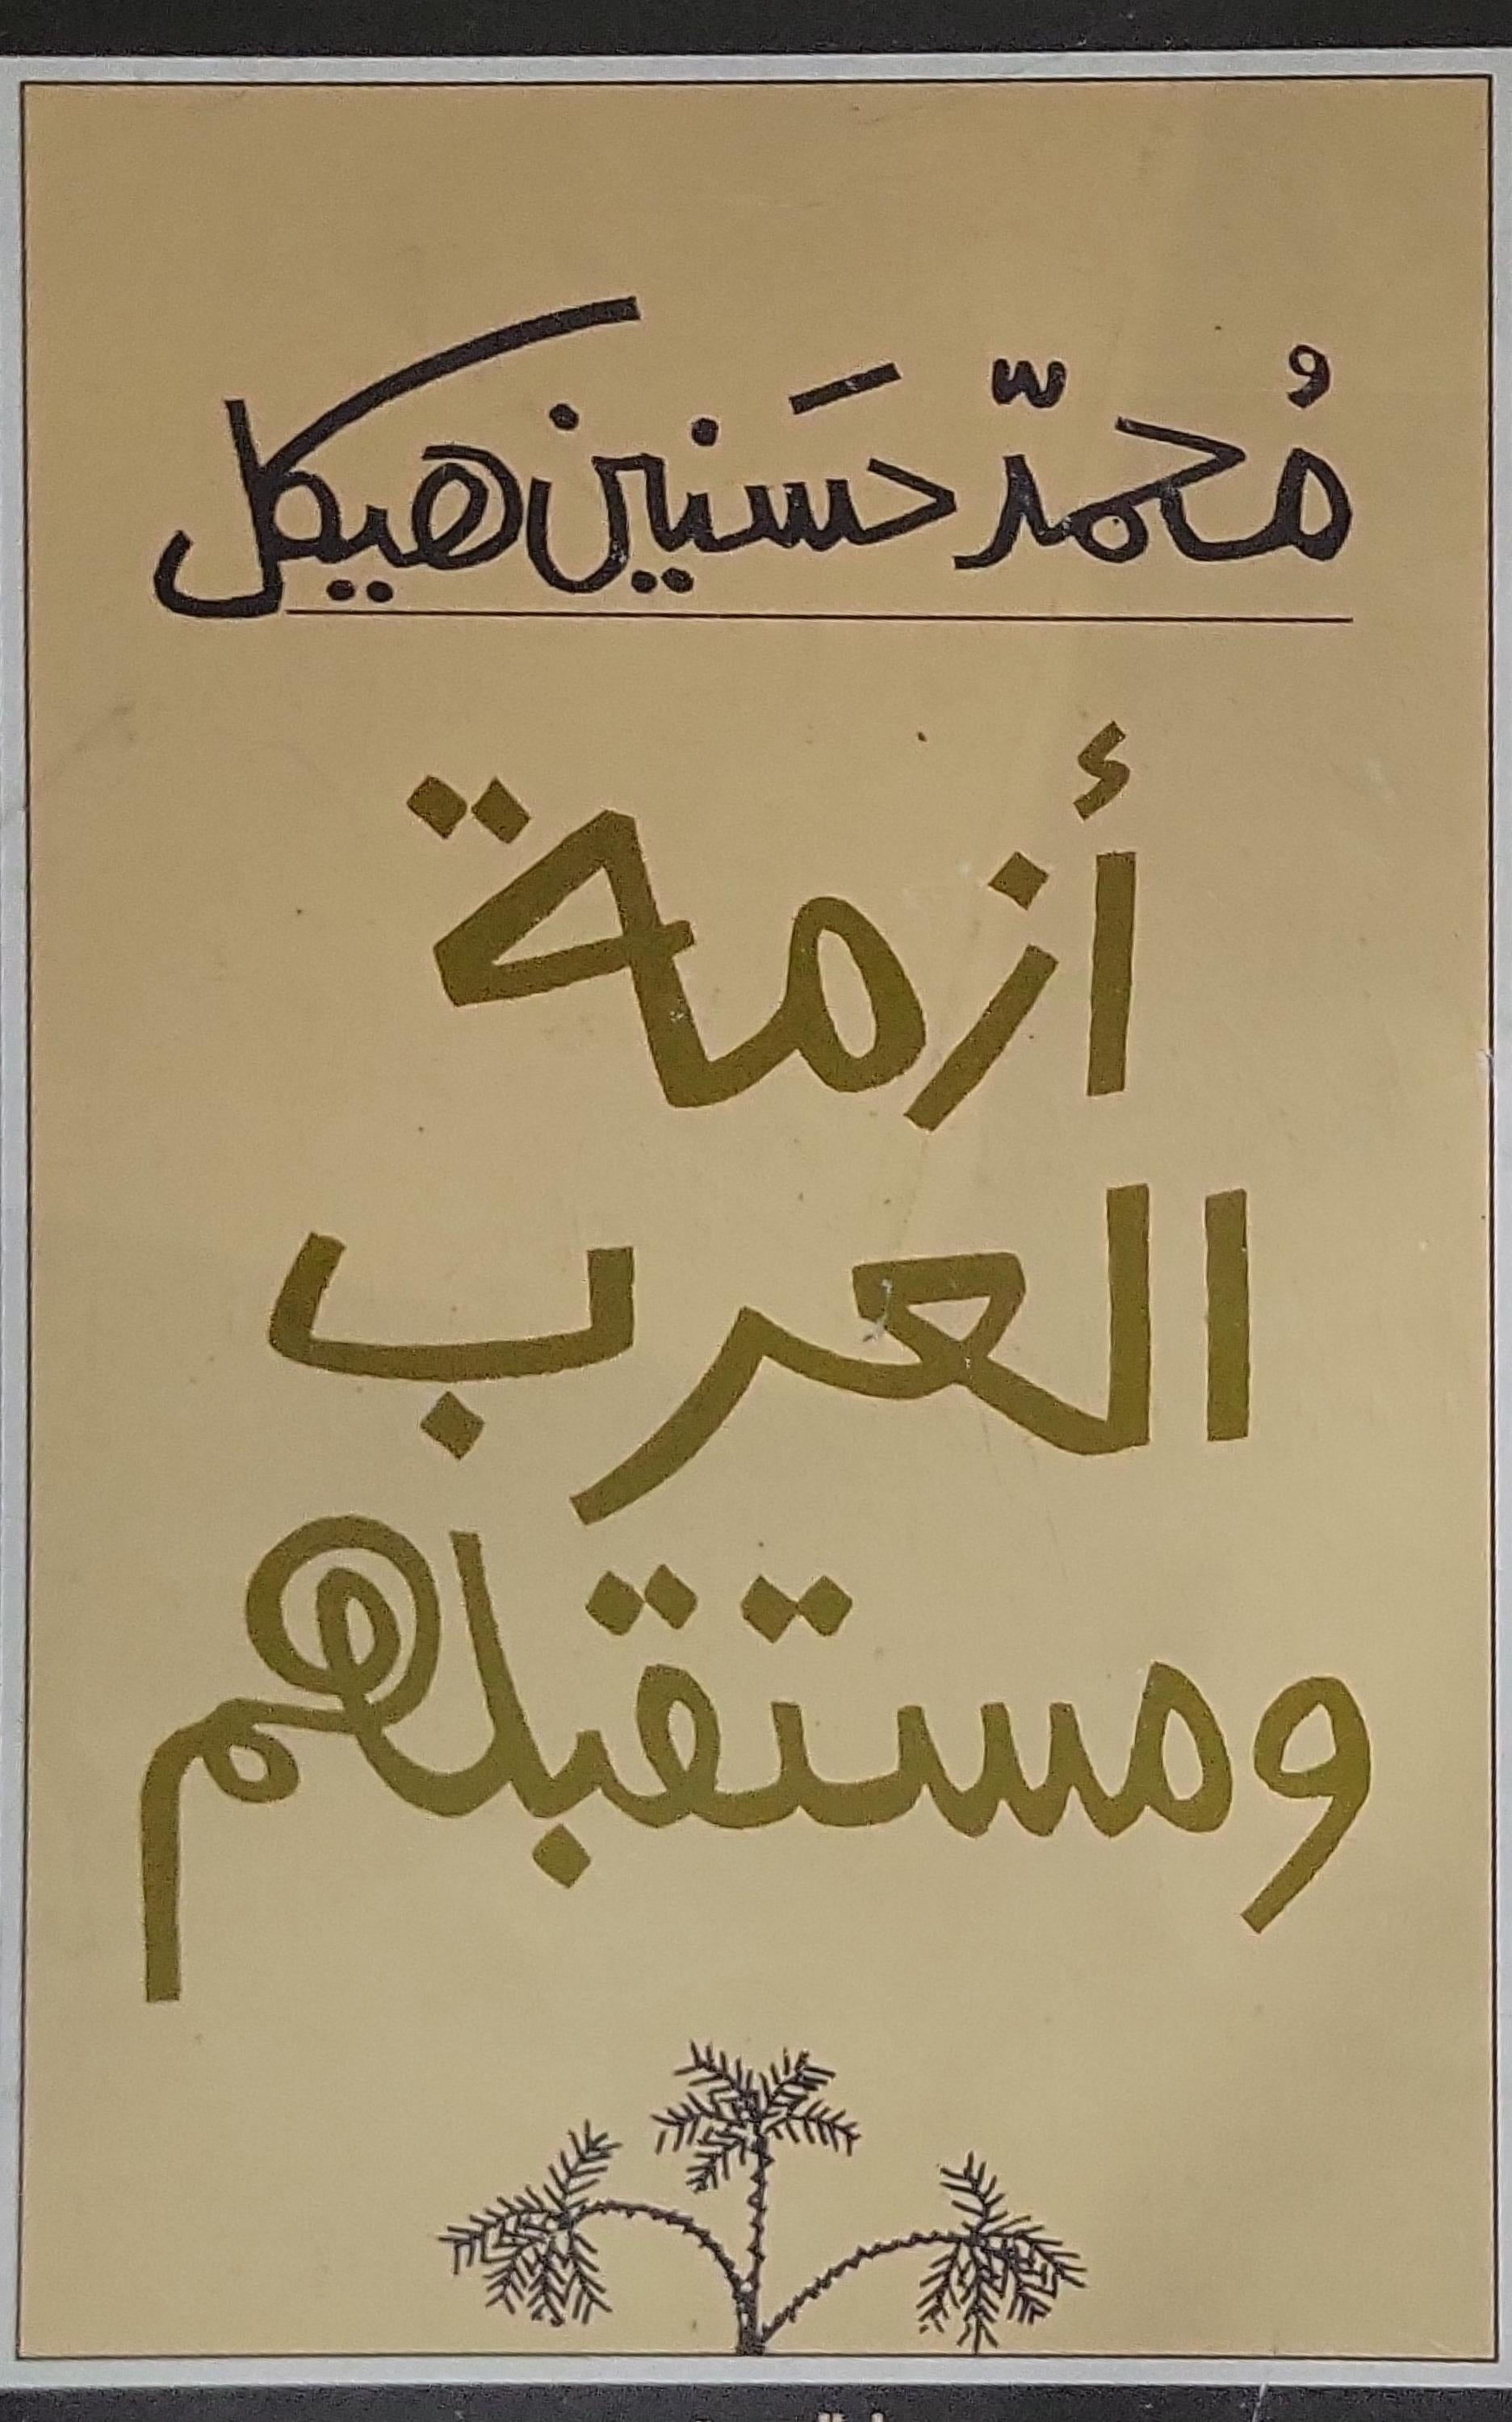 مُحمّد حسَنين هيكل
أزمة
العرب
ومستقبلهم